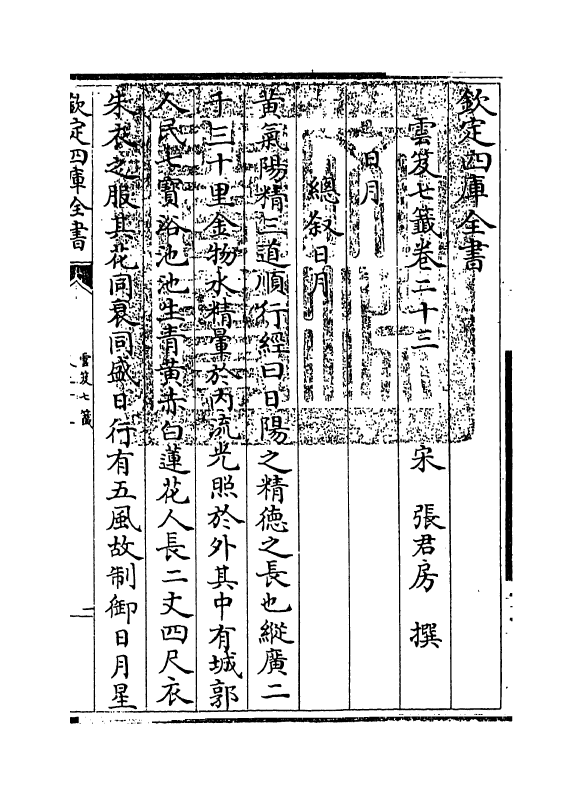 欽定四庫全書
雲笈七籤卷二十三
宋 張君房 撰
日月
總叙日月
黃氣陽精三道順行經曰日陽之精德之長也縱廣二
千三十里金物水精暈於内流光照於外其中有城郭
人民七寶浴池池生青黃赤白蓮花人長二丈四尺衣
朱衣之服其花同衰同盛日行有五風故制御日月星
欽定四庫全書
雲笈七籤